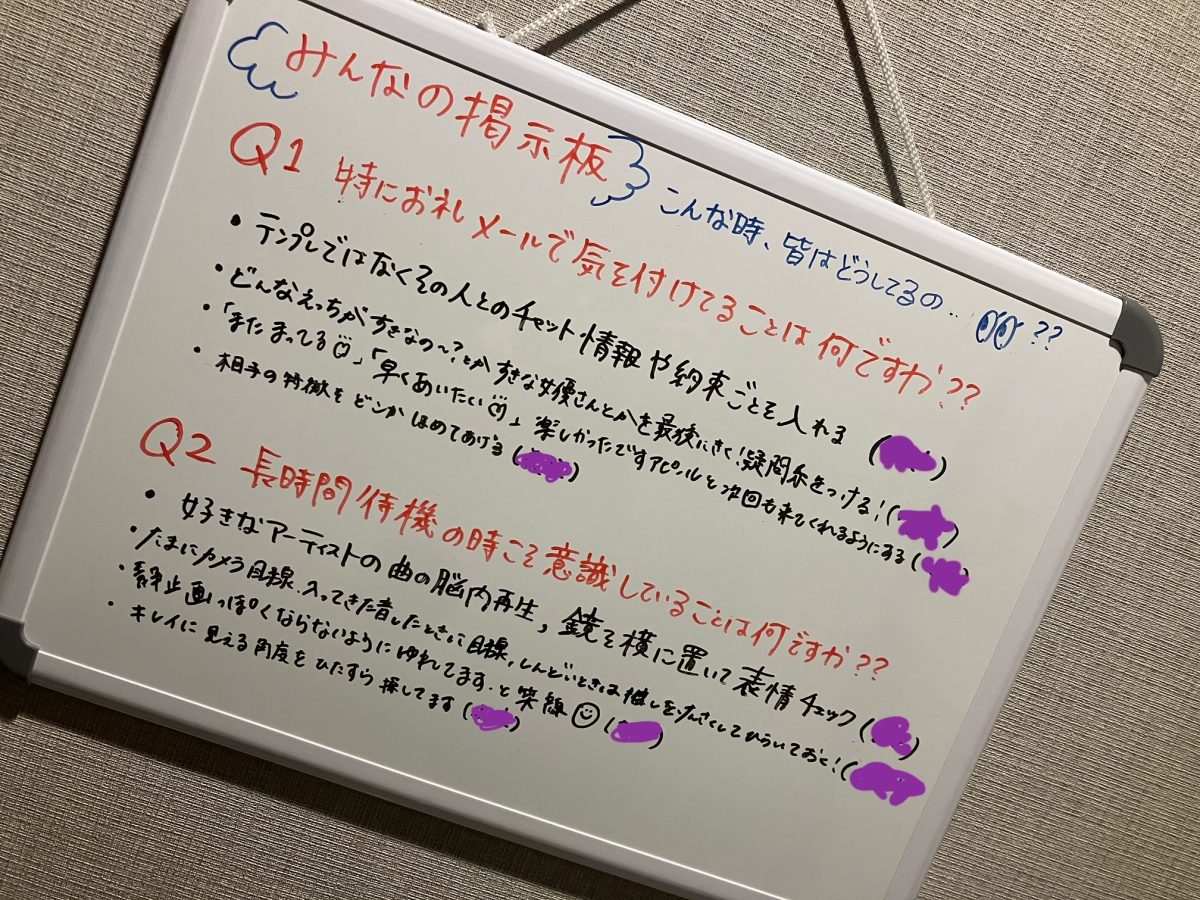 みんなの掲示板
こんな時、皆はどうしてるの.. ??
Q1 特にお礼メールで気を付けてることは何ですか??
・テンプレではなくその人とのチャット情報や約束ごとを入れる ( )
・どんなえっちがすきなの〜?とかすきな女優さんとかを最後にきく!疑問系をつける!( )
・「またまってる」「早くあいたい」楽しかったですアピールと次回も来てくれるようにする ( )
・相手の特徴をどこかほめてあげる ( )
Q2 長時間待機の時こそ意識していることは何ですか??
・好きなアーティストの曲の脳内再生, 鏡を横に置いて表情チェック ( )
・たまにカメラ目線、入ってきた音したときに目線, しんどいときは推しをけんさくしてひらいておく!( )
・静止画っぽくならないようにゆれてます.と笑線 ( )
・キレイに見える角度をひたすら探してます ( )